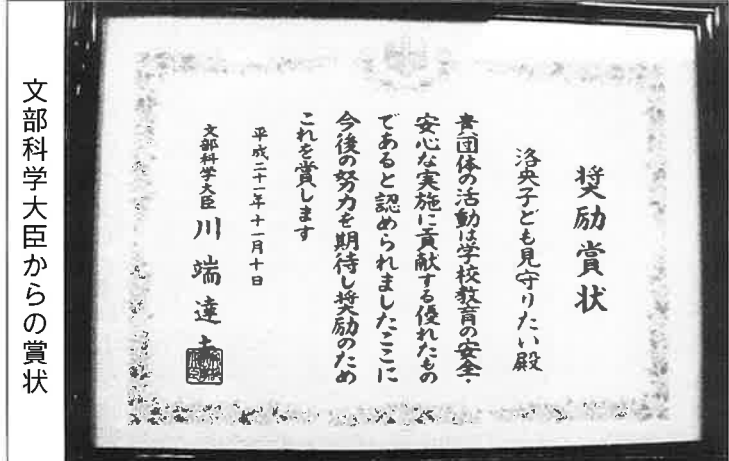 奨励賞状
洛央子ども見守りたい殿
貴団体の活動は学校教育の安全・
安心な実施に貢献する優れたもの
であると認められましたここに
今後の努力を期待し奨励のため
これを賞します
平成二十一年十一月十日
文部科学大臣 川端達夫
文部科学大臣からの賞状